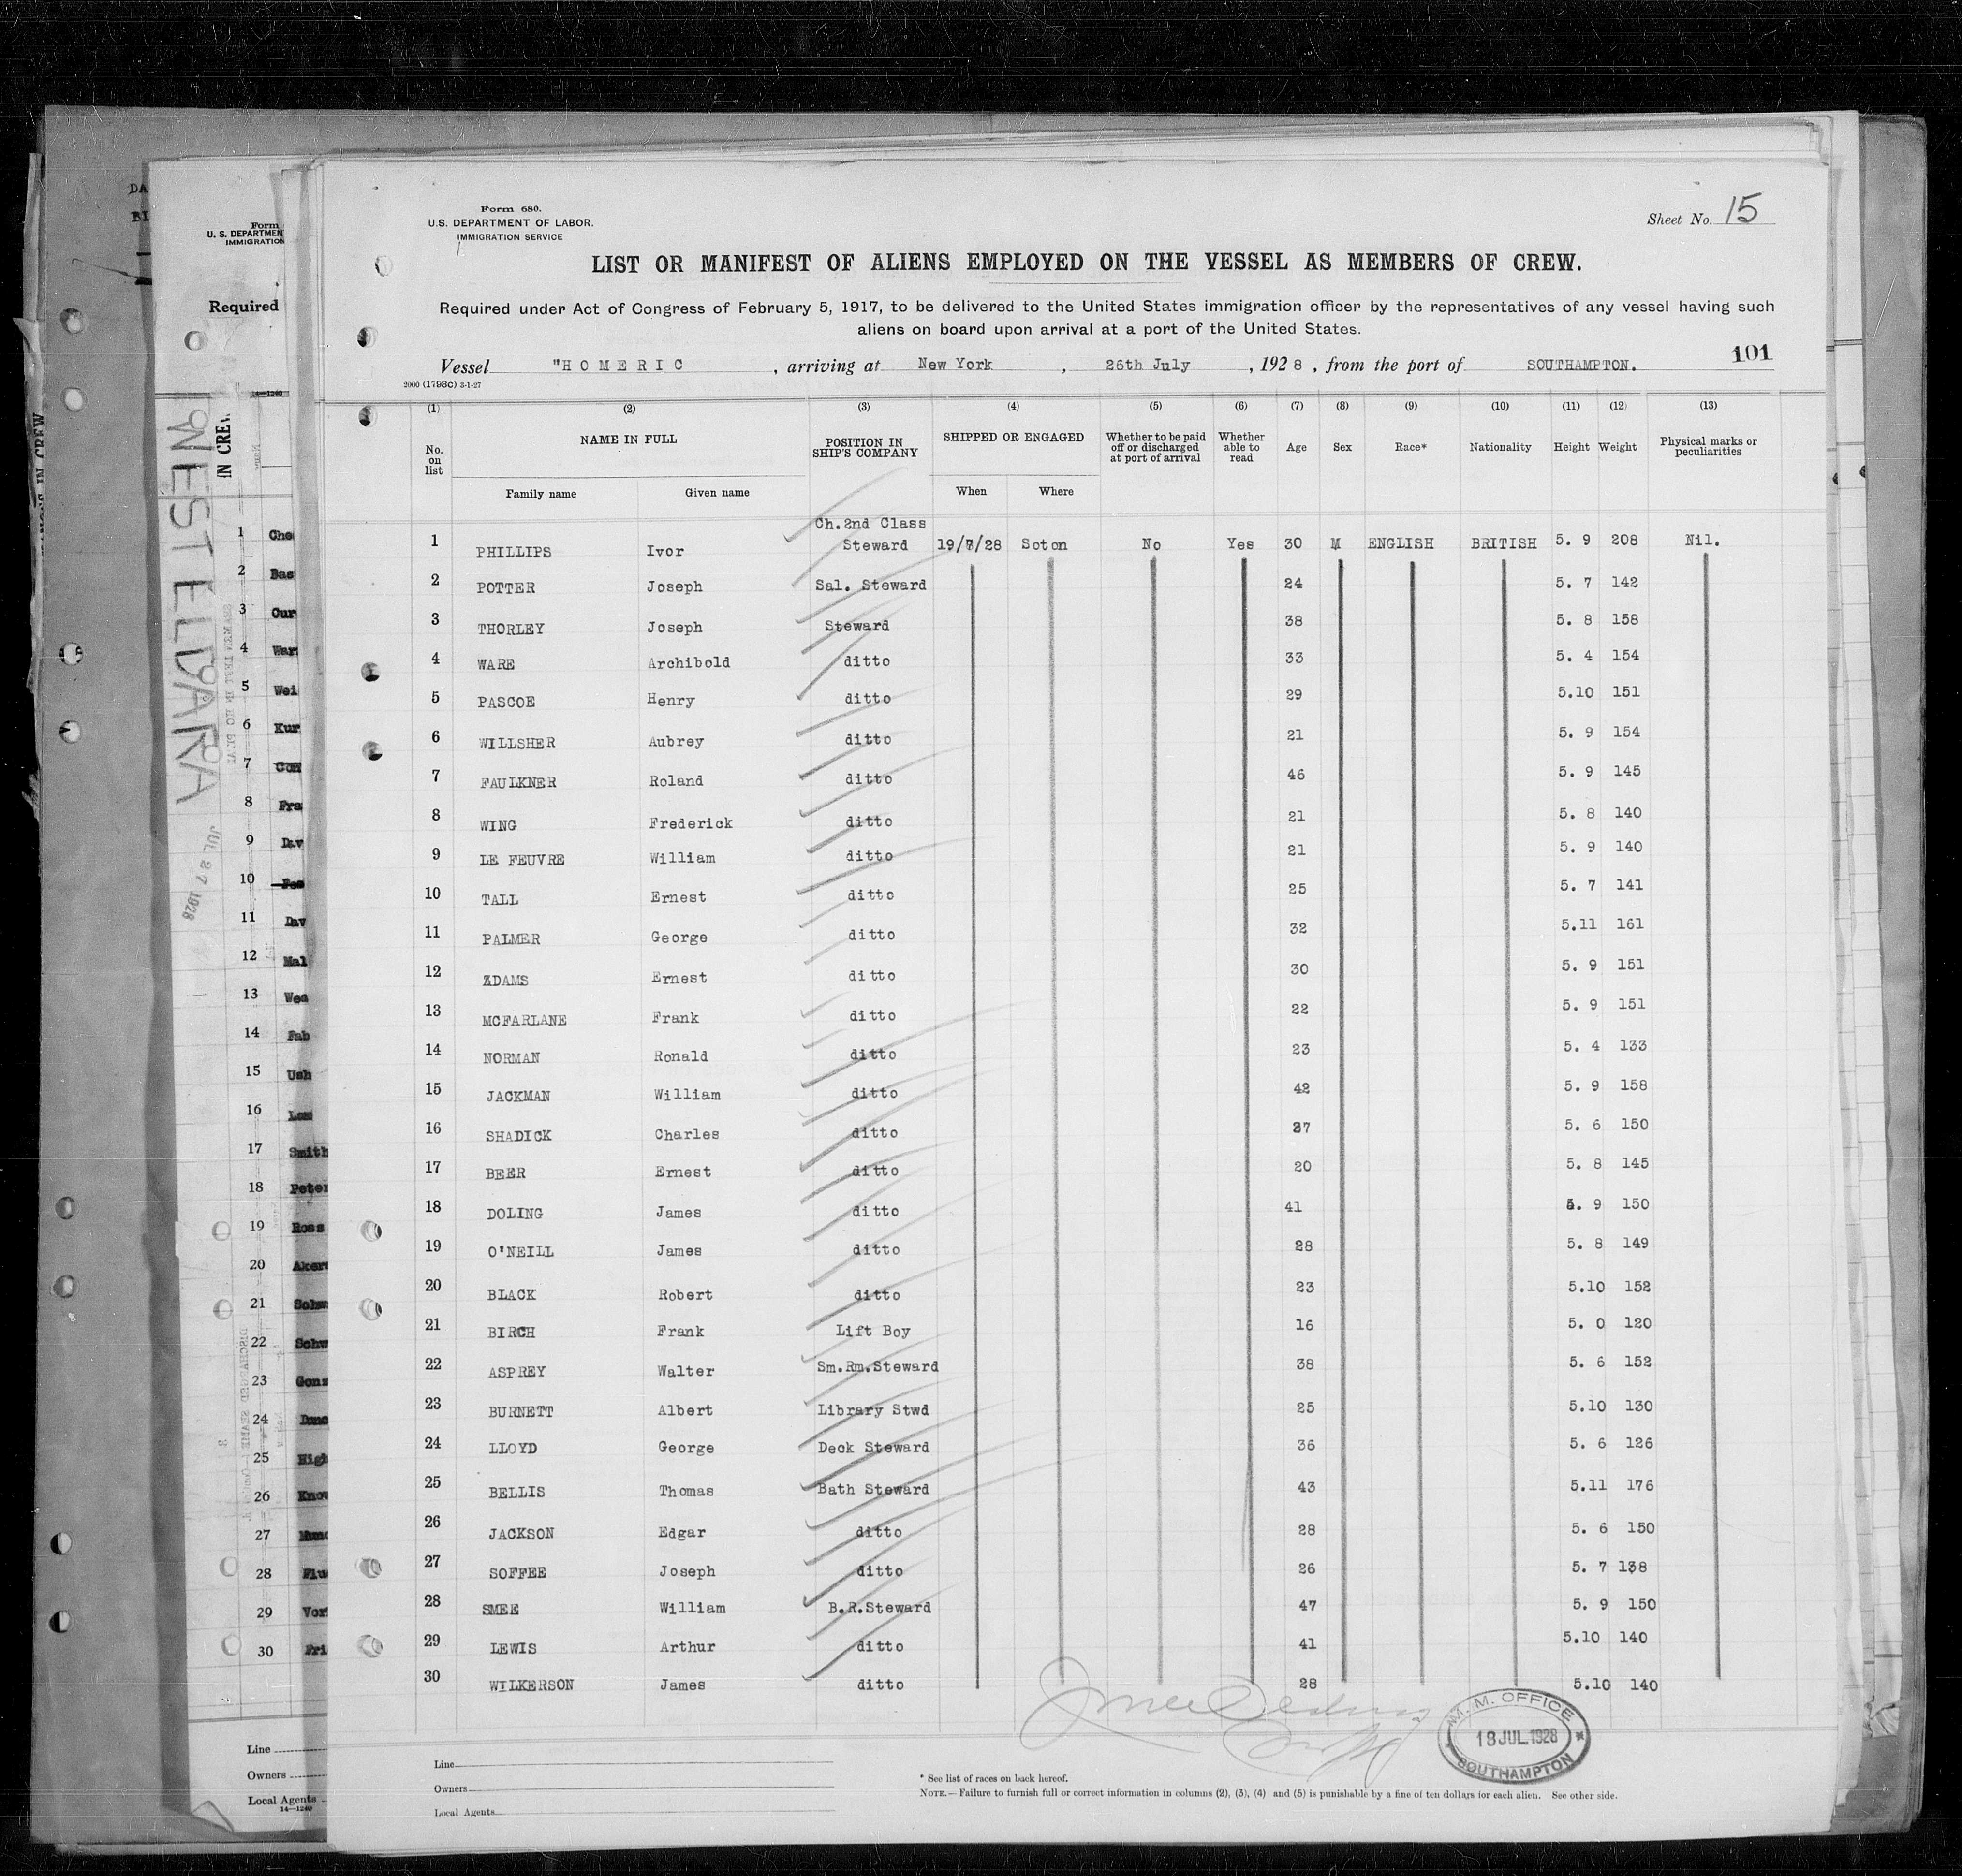 Form 680.
U.S. DEPARTMENT OF LABOR.
IMMIGRATION SERVICE
Sheet No. 15
LIST OR MANIFEST OF ALIENS EMPLOYED ON THE VESSEL AS MEMBERS OF CREW.
Required under Act of Congress of February 5, 1917, to be delivered to the United States immigration officer by the representatives of any vessel having such
aliens on board upon arrival at a port of the United States.
101
Vessel "HOMERIC , arriving at New York , 26th July , 1928, from the port of SOUTHAMPTON.
2000 (1798c) 3-1-27
(1) (2) (3) (4) (5) (6) (7) (8) (9) (10) (11) (12) (13)
No. on list NAME IN FULL POSITION IN SHIP'S COMPANY SHIPPED OR ENGAGED Whether to be paid off or discharged at port of arrival Whether able to read Age Sex Race* Nationality Height Weight Physical marks or peculiarities
Family name Given name When Where
1 PHILLIPS Ivor Ch.2nd Class Steward 19/7/28 Soton No Yes 30 M ENGLISH BRITISH 5. 9 208 Nil.
2 POTTER Joseph Sal. Steward 24 5. 7 142
3 THORLEY Joseph Steward 38 5. 8 158
4 WARE Archibold ditto 33 5. 4 154
5 PASCOE Henry ditto 29 5.10 151
6 WILLSHER Aubrey ditto 21 5. 9 154
7 FAULKNER Roland ditto 46 5. 9 145
8 WING Frederick ditto 21 5. 8 140
9 LE FEUVRE William ditto 21 5. 9 140
10 TALL Ernest ditto 25 5. 7 141
11 PALMER George ditto 32 5.11 161
12 ADAMS Ernest ditto 30 5. 9 151
13 MCFARLANE Frank ditto 22 5. 9 151
14 NORMAN Ronald ditto 23 5. 4 133
15 JACKMAN William ditto 42 5. 9 158
16 SHADICK Charles ditto 37 5. 6 150
17 BEER Ernest ditto 20 5. 8 145
18 DOLING James ditto 41 5. 9 150
19 O'NEILL James ditto 28 5. 8 149
20 BLACK Robert ditto 23 5.10 152
21 BIRCH Frank Lift Boy 16 5. 0 120
22 ASPREY Walter Sm.Rm.Steward 38 5. 6 152
23 BURNETT Albert Library Stwd 25 5.10 130
24 LLOYD George Deck Steward 36 5. 6 126
25 BELLIS Thomas Bath Steward 43 5.11 176
26 JACKSON Edgar ditto 28 5. 6 150
27 SOFFEE Joseph ditto 26 5. 7 138
28 SMEE William B.R.Steward 47 5. 9 150
29 LEWIS Arthur ditto 41 5.10 140
30 WILKERSON James ditto 28 5.10 140
M. M. OFFICE
18 JUL 1928
SOUTHAMPTON
Line
Owners
Local Agents
* See list of races on back hereof.
NOTE.—Failure to furnish full or correct information in columns (2), (3), (4) and (5) is punishable by a fine of ten dollars for each alien. See other side.
Form
U. S. DEPARTMEN
IMMIGRATION
Required
14—1240
IN CREW
WEST ELDARA
JUL 27 1928
1 Che
2 Bas
3 Cur
4 War
5 Wei
6 Kur
7 Con
8 Fra
9 Dav
10
11 Dav
12 Mal
13 Wea
14 Fab
15 Ush
16
17 Smith
18 Peter
19 Ross
20 Akers
21 Schw
22 Schw
23 Gonz
24 Dunc
25 High
26 Know
27
28
29 Vor
30 Fri
Line
Owners
Local Agents
14—1240
DA
BI